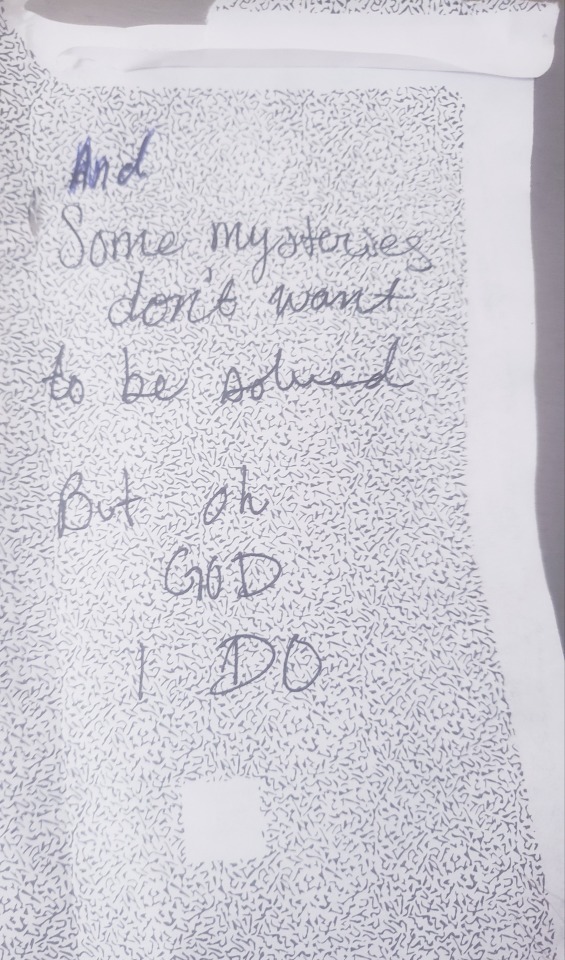 And
Some mysteries
don't want
to be solved
But oh
GOD
I DO